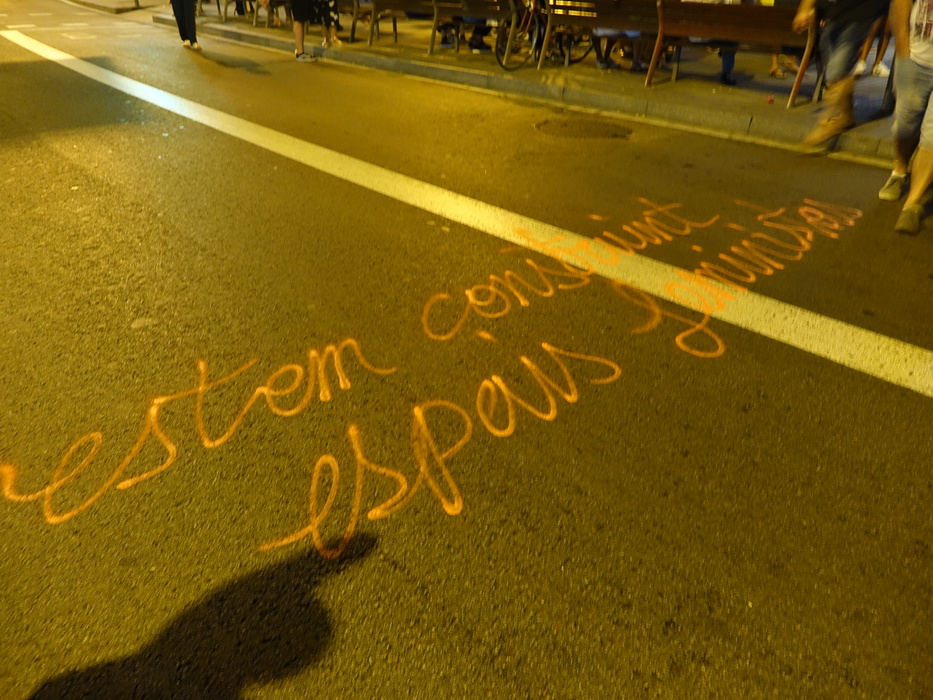 estem construint
espais feministes